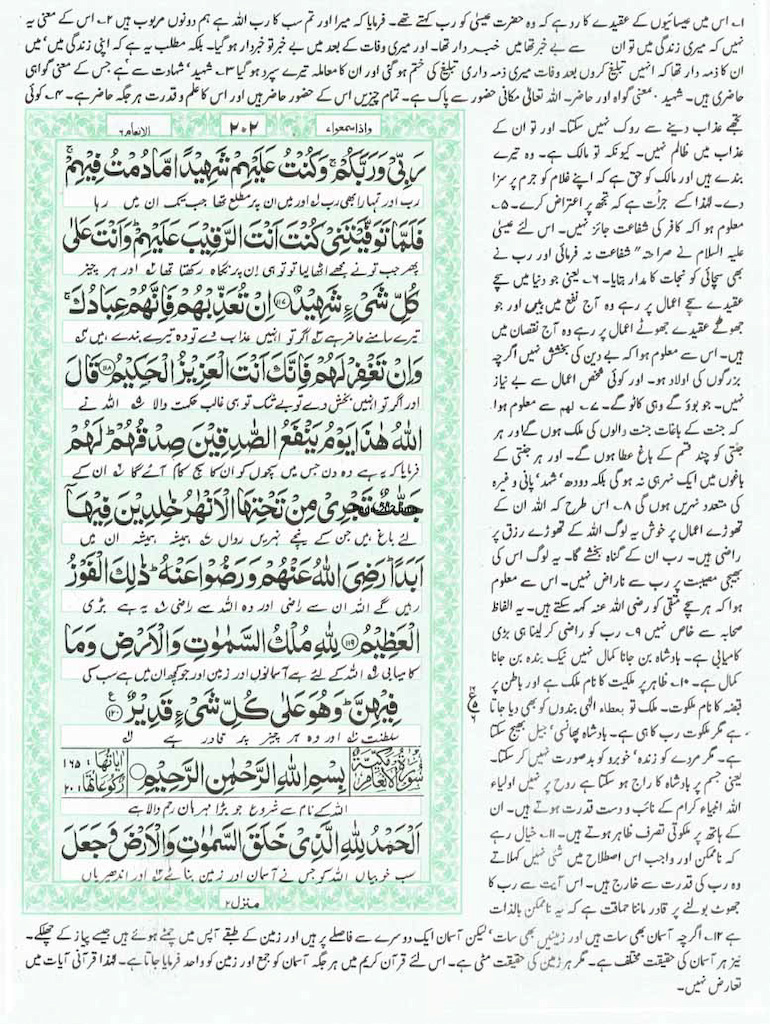 ۱۔ اس میں عیسائیوں کے عقیدے کا رد ہے کہ وہ حضرت عیسیٰ کو رب کہتے تھے۔ فرمایا کہ میرا اور تم سب کا رب اللہ ہے ہم دونوں مربوب ہیں ۲۔ اس کے معنی یہ
نہیں کہ میری زندگی میں تو ان سے بے خبر تھا میں خبردار تھا۔ اور میری وفات کے بعد میں بے خبر تو خبردار ہو گیا۔ بلکہ مطلب یہ ہے کہ اپنی زندگی میں' میں
ان کا ذمہ دار تھا کہ انہیں تبلیغ کروں بعد وفات میری ذمہ داری تبلیغ کی ختم ہو گئی اور ان کا معاملہ تیرے سپرد ہو گیا ۳۔ شہید' شہادت سے ہے جس کے معنی گواہی
حاضری ہیں۔ شہید، بمعنی گواہ اور حاضر۔ اللہ تعالیٰ مکانی حضور سے پاک ہے۔ تمام چیزیں اس کے حضور حاضر ہیں اور اس کا علم و قدرت ہر جگہ حاضر ہے۔ ۴۔ کوئی
تجھے عذاب دینے سے روک نہیں سکتا۔ اور تو ان کے
عذاب میں ظالم نہیں۔ کیونکہ تو مالک ہے۔ وہ تیرے
بندے ہیں اور مالک کو حق ہے کہ اپنے غلام کو جرم پر سزا
دے۔ لہٰذا کسے جرأت ہے کہ تجھ پر اعتراض کرے۔ ۵۔
معلوم ہوا کہ کافر کی شفاعت جائز نہیں۔ اس لئے عیسیٰ
علیہ السلام نے صراحتہً شفاعت نہ فرمائی اور رب نے
بھی سچائی کو نجات کا مدار بتایا۔ ۶۔ یعنی جو دنیا میں سچے
عقیدے سچے اعمال پر رہے وہ آج نفع میں ہیں اور جو
جھوٹے عقیدے جھوٹے اعمال پر رہے وہ آج نقصان میں
ہیں۔ اس سے معلوم ہوا کہ بے دین کی بخشش نہیں اگرچہ
بزرگوں کی اولاد ہو۔ اور کوئی شخص اعمال سے بے نیاز
نہیں۔ جو بوؤ گے وہی کاٹو گے۔ ۷۔ لہم سے معلوم ہوا
کہ جنت کے باغات جنت والوں کی ملک ہوں گے اور ہر
جنتی کو چند قسم کے باغ عطا ہوں گے۔ اور ہر جنتی کے
باغوں میں ایک نہر ہی نہ ہو گی بلکہ دودھ' شہد' پانی وغیرہ
کی متعدد نہریں ہوں گی ۸۔ اس طرح کہ اللہ ان کے
تھوڑے اعمال پر خوش یہ لوگ اللہ کے تھوڑے رزق پر
راضی ہیں۔ رب ان کے گناہ بخشے گا۔ یہ لوگ اس کی
بھیجی مصیبت پر رب سے ناراض نہیں۔ اس سے معلوم
ہوا کہ ہر سچے متقی کو رضی اللہ عنہ کہہ سکتے ہیں۔ یہ الفاظ
صحابہ سے خاص نہیں ۹۔ رب کو راضی کر لینا ہی بڑی
کامیابی ہے۔ بادشاہ بن جانا کمال نہیں نیک بندہ بن جانا
کمال ہے۔ ۱۰۔ ظاہر پر ملکیت کا نام ملک ہے اور باطن پر
قبضہ کا نام ملکوت۔ ملک تو بعطاء الٰہی بندوں کو بھی دیا جاتا
ہے مگر ملکوت رب کا ہی ہے۔ بادشاہ پھانسی' جیل بھیج سکتا
ہے۔ مگر مردے کو زندہ' خوبرو کو بدصورت نہیں کر سکتا۔
یعنی جسم پر بادشاہ کا راج ہو سکتا ہے روح پر نہیں اولیاء
اللہ انبیاء کرام کے نائب و دست قدرت ہوتے ہیں۔ ان
کے ہاتھ پر ملکوتی تصرف ظاہر ہوتے ہیں۔ ۱۱۔ خیال رہے
کہ ناممکن اور واجب اس اصطلاح میں شئی نہیں کہلاتے
وہ رب کی قدرت سے خارج ہیں۔ اس آیت سے رب کا
جھوٹ بولنے پر قادر ماننا حماقت ہے کہ یہ ناممکن بالذات
واذا سمعوا ۷
۲۰۲
الانعام ۶
رَبِّيْ وَرَبَّكُمْ ۚ وَكُنْتُ عَلَيْهِمْ شَهِيْدًا مَّا دُمْتُ فِيْهِمْ ۚ
رب اور تمہارا بھی رب اور میں ان پر مطلع تھا جب تک ان میں رہا
فَلَمَّا تَوَفَّيْتَنِيْ كُنْتَ اَنْتَ الرَّقِيْبَ عَلَيْهِمْ ۭ وَاَنْتَ عَلٰى
پھر جب تو نے مجھے اٹھا لیا تو تو ہی ان پر نگاہ رکھتا تھا اور ہر چیز
كُلِّ شَيْءٍ شَهِيْدٌ ۱۱۷ اِنْ تُعَذِّبْهُمْ فَاِنَّهُمْ عِبَادُكَ ۚ
تیرے سامنے حاضر ہے اگر تو انہیں عذاب دے تو وہ تیرے بندے ہیں
وَاِنْ تَغْفِرْ لَهُمْ فَاِنَّكَ اَنْتَ الْعَزِيْزُ الْحَكِيْمُ ۱۱۸ قَالَ
اور اگر تو انہیں بخش دے تو بے شک تو ہی غالب حکمت والا اللہ نے
اللّٰهُ هٰذَا يَوْمُ يَنْفَعُ الصّٰدِقِيْنَ صِدْقُهُمْ ۭ لَهُمْ
فرمایا کہ یہ ہے وہ دن جس میں سچوں کو ان کا سچ کام آئے گا ان کے
جَنّٰتٌ تَجْرِيْ مِنْ تَحْتِهَا الْاَنْهٰرُ خٰلِدِيْنَ فِيْهَآ
لئے باغ ہیں جن کے نیچے نہریں رواں ہمیشہ ہمیشہ ان میں
اَبَدًا ۭ رَضِيَ اللّٰهُ عَنْهُمْ وَرَضُوْا عَنْهُ ۭ ذٰلِكَ الْفَوْزُ
رہیں گے اللہ ان سے راضی اور وہ اللہ سے راضی یہ ہے بڑی
الْعَظِيْمُ ۱۱۹ لِلّٰهِ مُلْكُ السَّمٰوٰتِ وَالْاَرْضِ وَمَا
کامیابی اللہ کے لئے ہے آسمانوں اور زمین اور جو کچھ ان میں ہے سب کی
فِيْهِنَّ ۭ وَهُوَ عَلٰى كُلِّ شَيْءٍ قَدِيْرٌ ۱۲۰
سلطنت اور وہ ہر چیز پر قادر ہے
سُوْرَةُ الْاَنْعَامِ مَكِّيَّةٌ
بِسْمِ اللّٰهِ الرَّحْمٰنِ الرَّحِيْمِ
اٰيَاتُهَا ۱۶۵ رُكُوْعَاتُهَا ۲۰
اللہ کے نام سے شروع جو بڑا مہربان رحم والا ہے
اَلْحَمْدُ لِلّٰهِ الَّذِيْ خَلَقَ السَّمٰوٰتِ وَالْاَرْضَ وَجَعَلَ
سب خوبیاں اللہ کو جس نے آسمان اور زمین بنائے اور اندھیریاں
منزل ۲
ہے ۱۲۔ اگرچہ آسمان بھی سات ہیں اور زمینیں بھی سات' لیکن آسمان ایک دوسرے سے فاصلے پر ہیں اور زمین کے طبقے آپس میں چمٹے ہوئے ہیں جیسے پیاز کے چھلکے۔
نیز ہر آسمان کی حقیقت مختلف ہے۔ مگر ہر زمین کی حقیقت مٹی ہے۔ اس لئے قرآن کریم میں ہر جگہ آسمان کو جمع اور زمین کو واحد فرمایا جاتا ہے۔ لہٰذا قرآنی آیات میں
تعارض نہیں۔